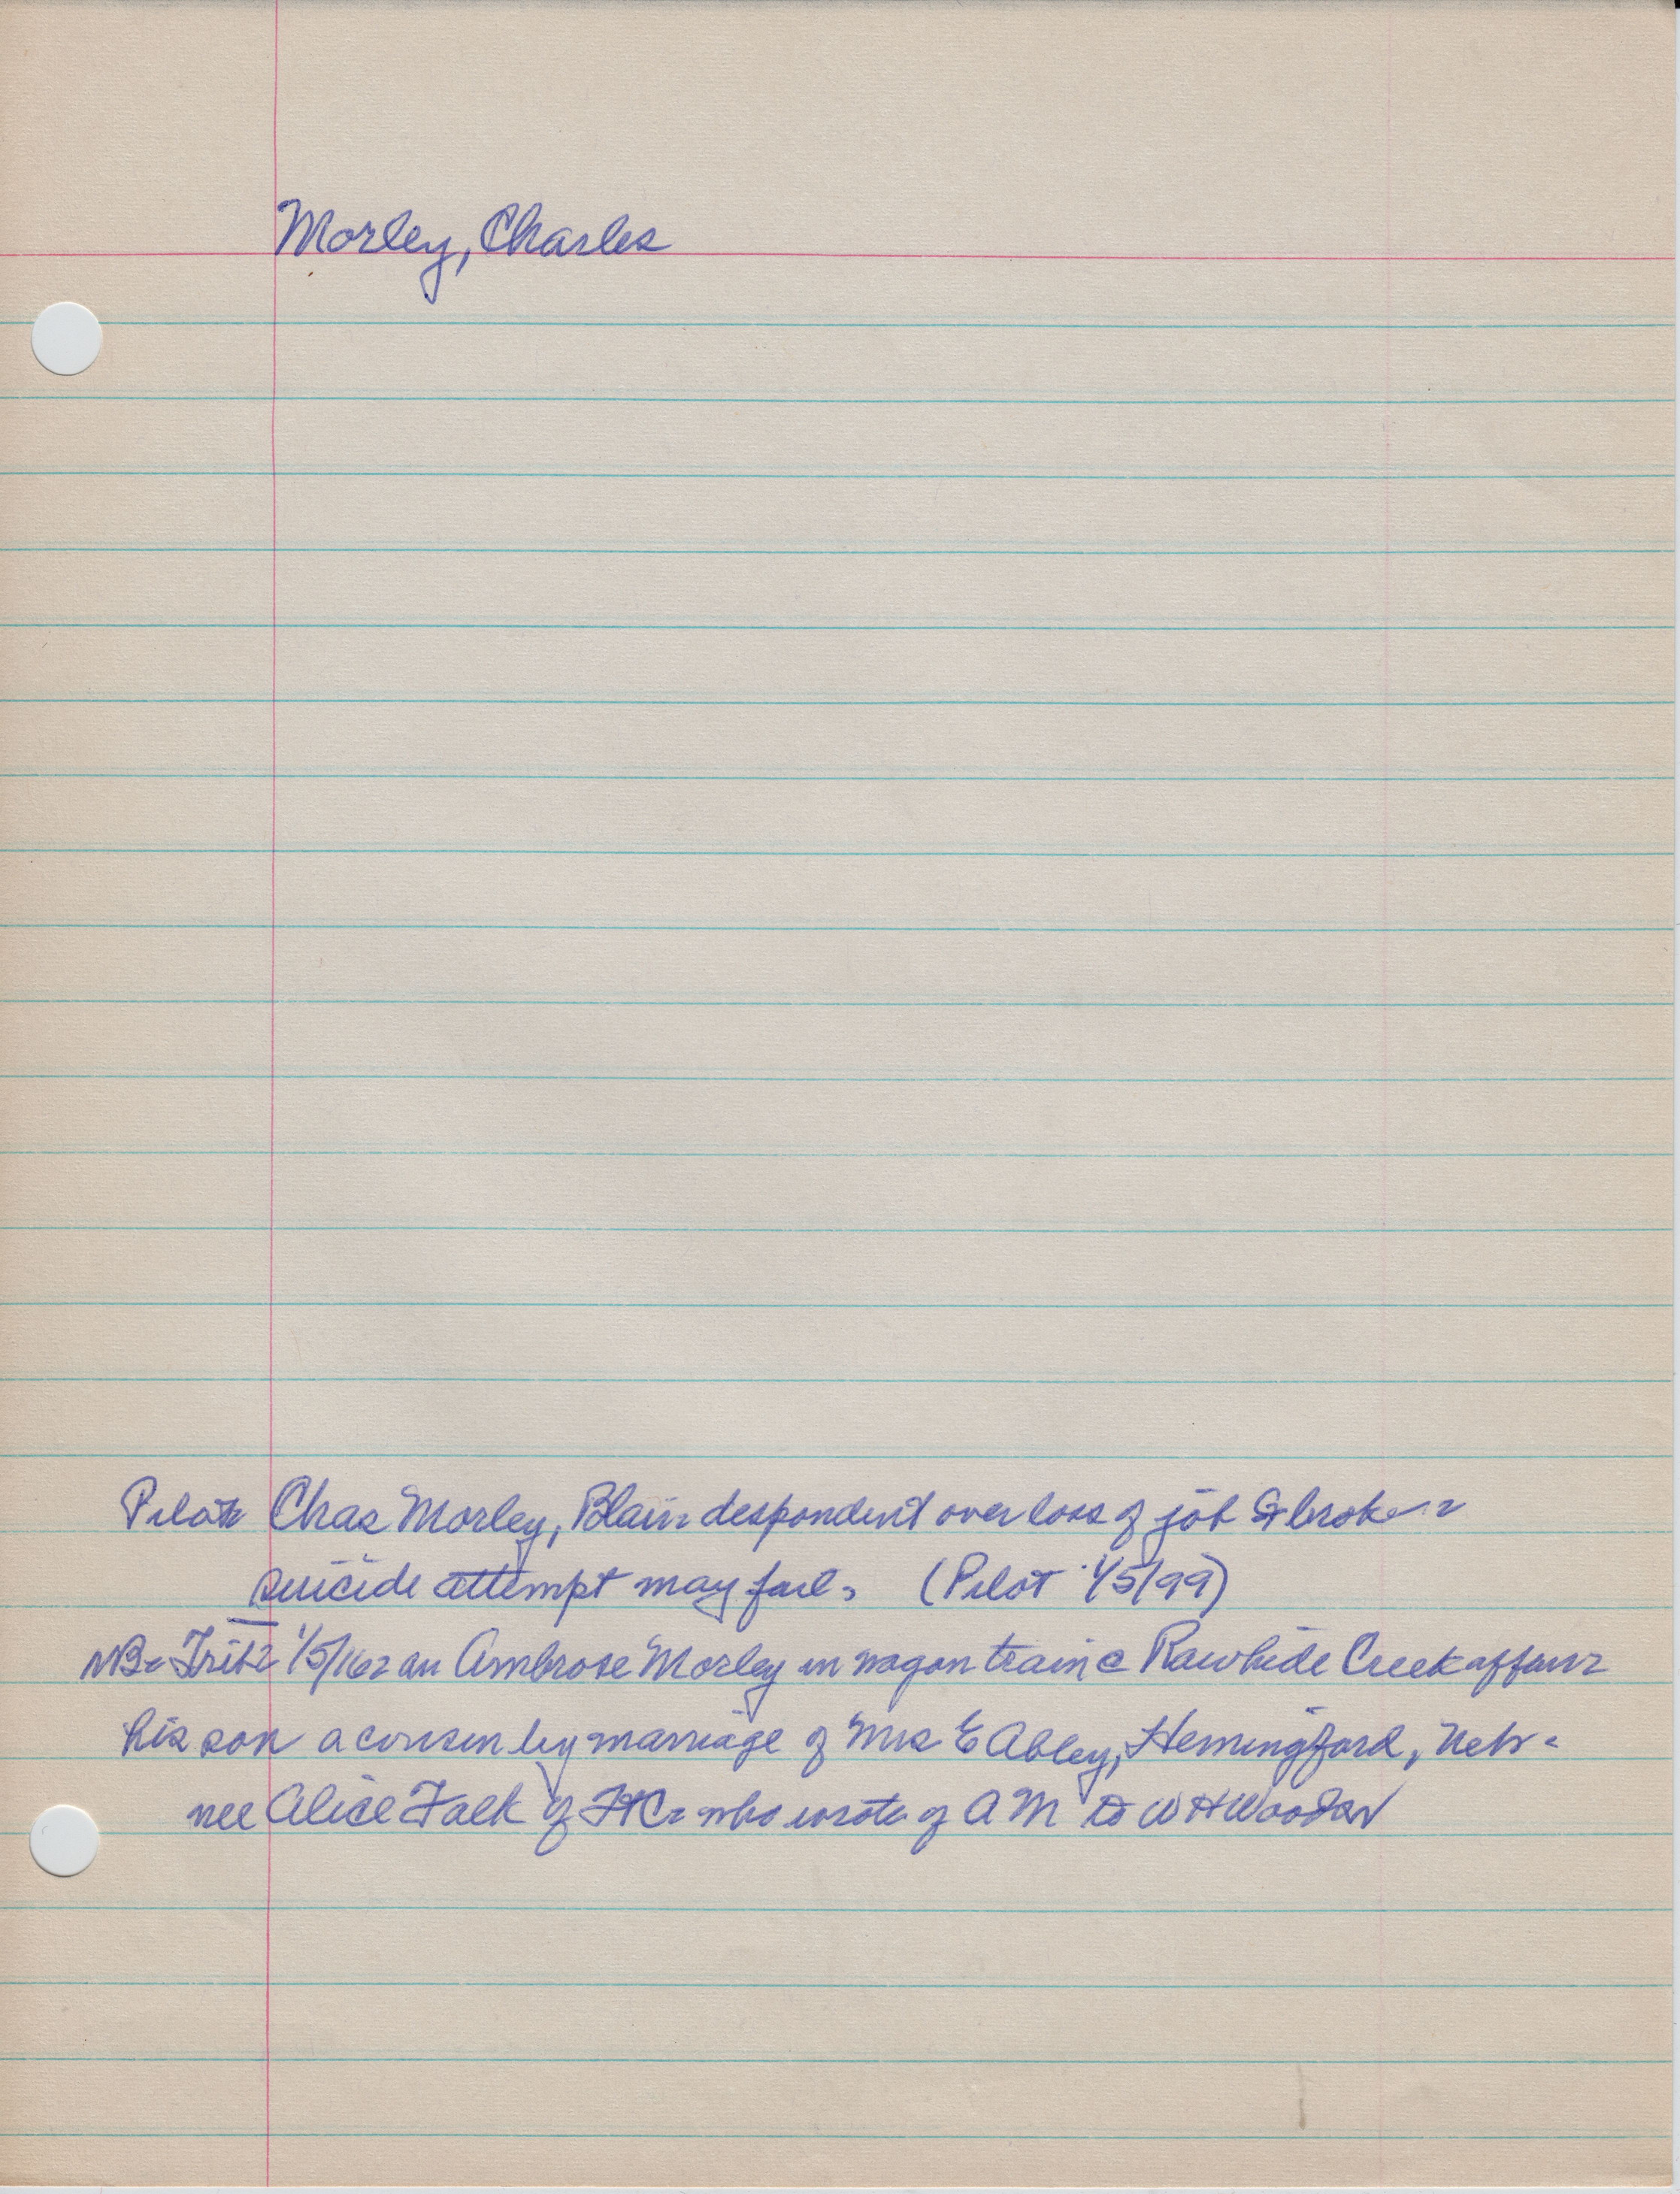 Morley, Charles
Pilot Chas Morley, Blair despondent over loss of job & broke
suicide attempt may fail. (Pilot 1/5/99)
NB. Trib 1/5/162 an Ambrose Morley in wagon train c Rawhide Creek affair
his son a cousin by marriage of Mrs E Abley, Hemingford, Nebr.
nee Alice Falk of FtC. who wrote of A M to W H Woods